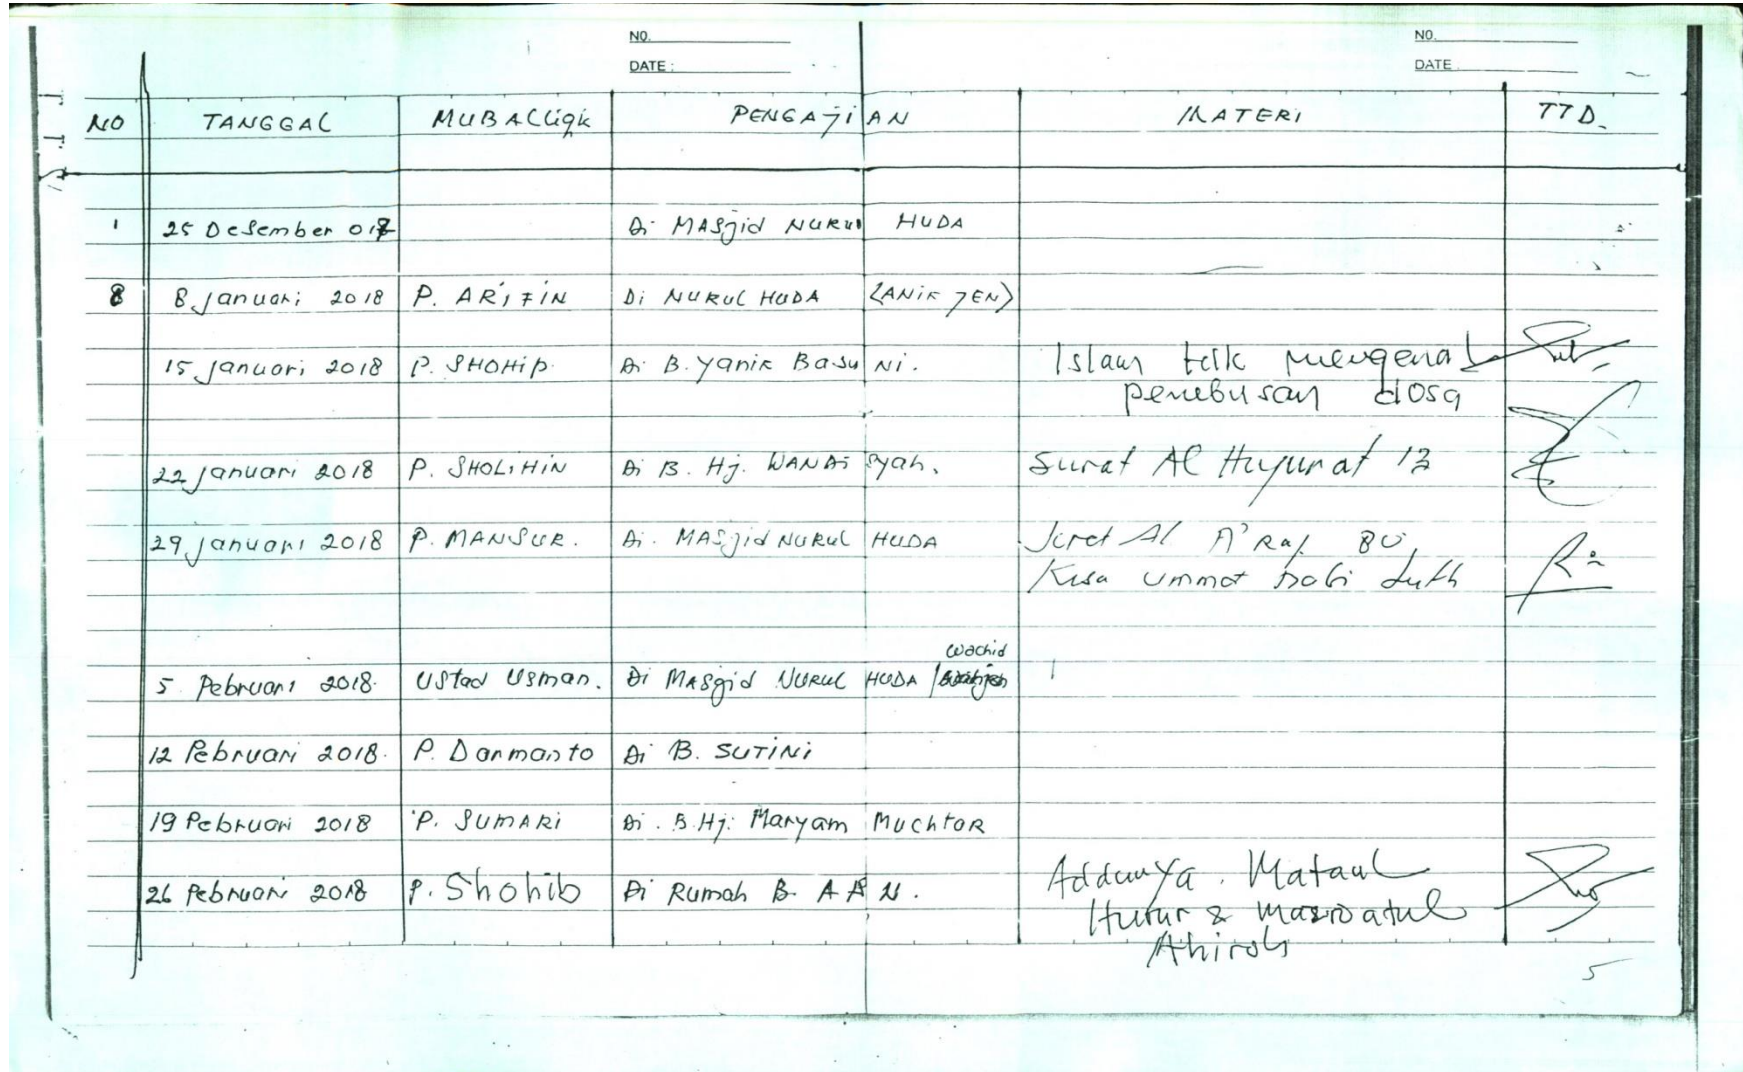 NO. NO.
DATE : DATE
NO TANGGAL MUBALLigh PENGAJiAN MATERi TTD.
1 25 Desember 017 Di MASjid NURul HUDA
8 8 Januari 2018 P. ARiFiN Di NURUL HUDA (ANiK JEN)
15 Januari 2018 P. SHOHiP. Di B. Yanik Basu Ni. Islam tdk mengenal
penebusan dosa
22 Januari 2018 P. SHOLiHiN Di B. Hj. WANDi Syah. Surat Al Hujurat 13
29 Januari 2018 P. MANSUR. Di. MASjid NURUL HUDA Surat Al A'Raf 80,
Kisa ummat Nabi Luth
Wachid
5 Pebruari 2018. Ustad Usman. Di Masjid NURUL HUDA /
12 Pebruari 2018. P. Darmanto Di B. SUTiNi
19 Pebruari 2018 P. SUMARi Di. B. Hj. Maryam Muchtar
26 Pebruari 2018 P. Shohib Di Rumah B. A A N. Addunya. Mataul
& Mazroatul
Ahiroh
5